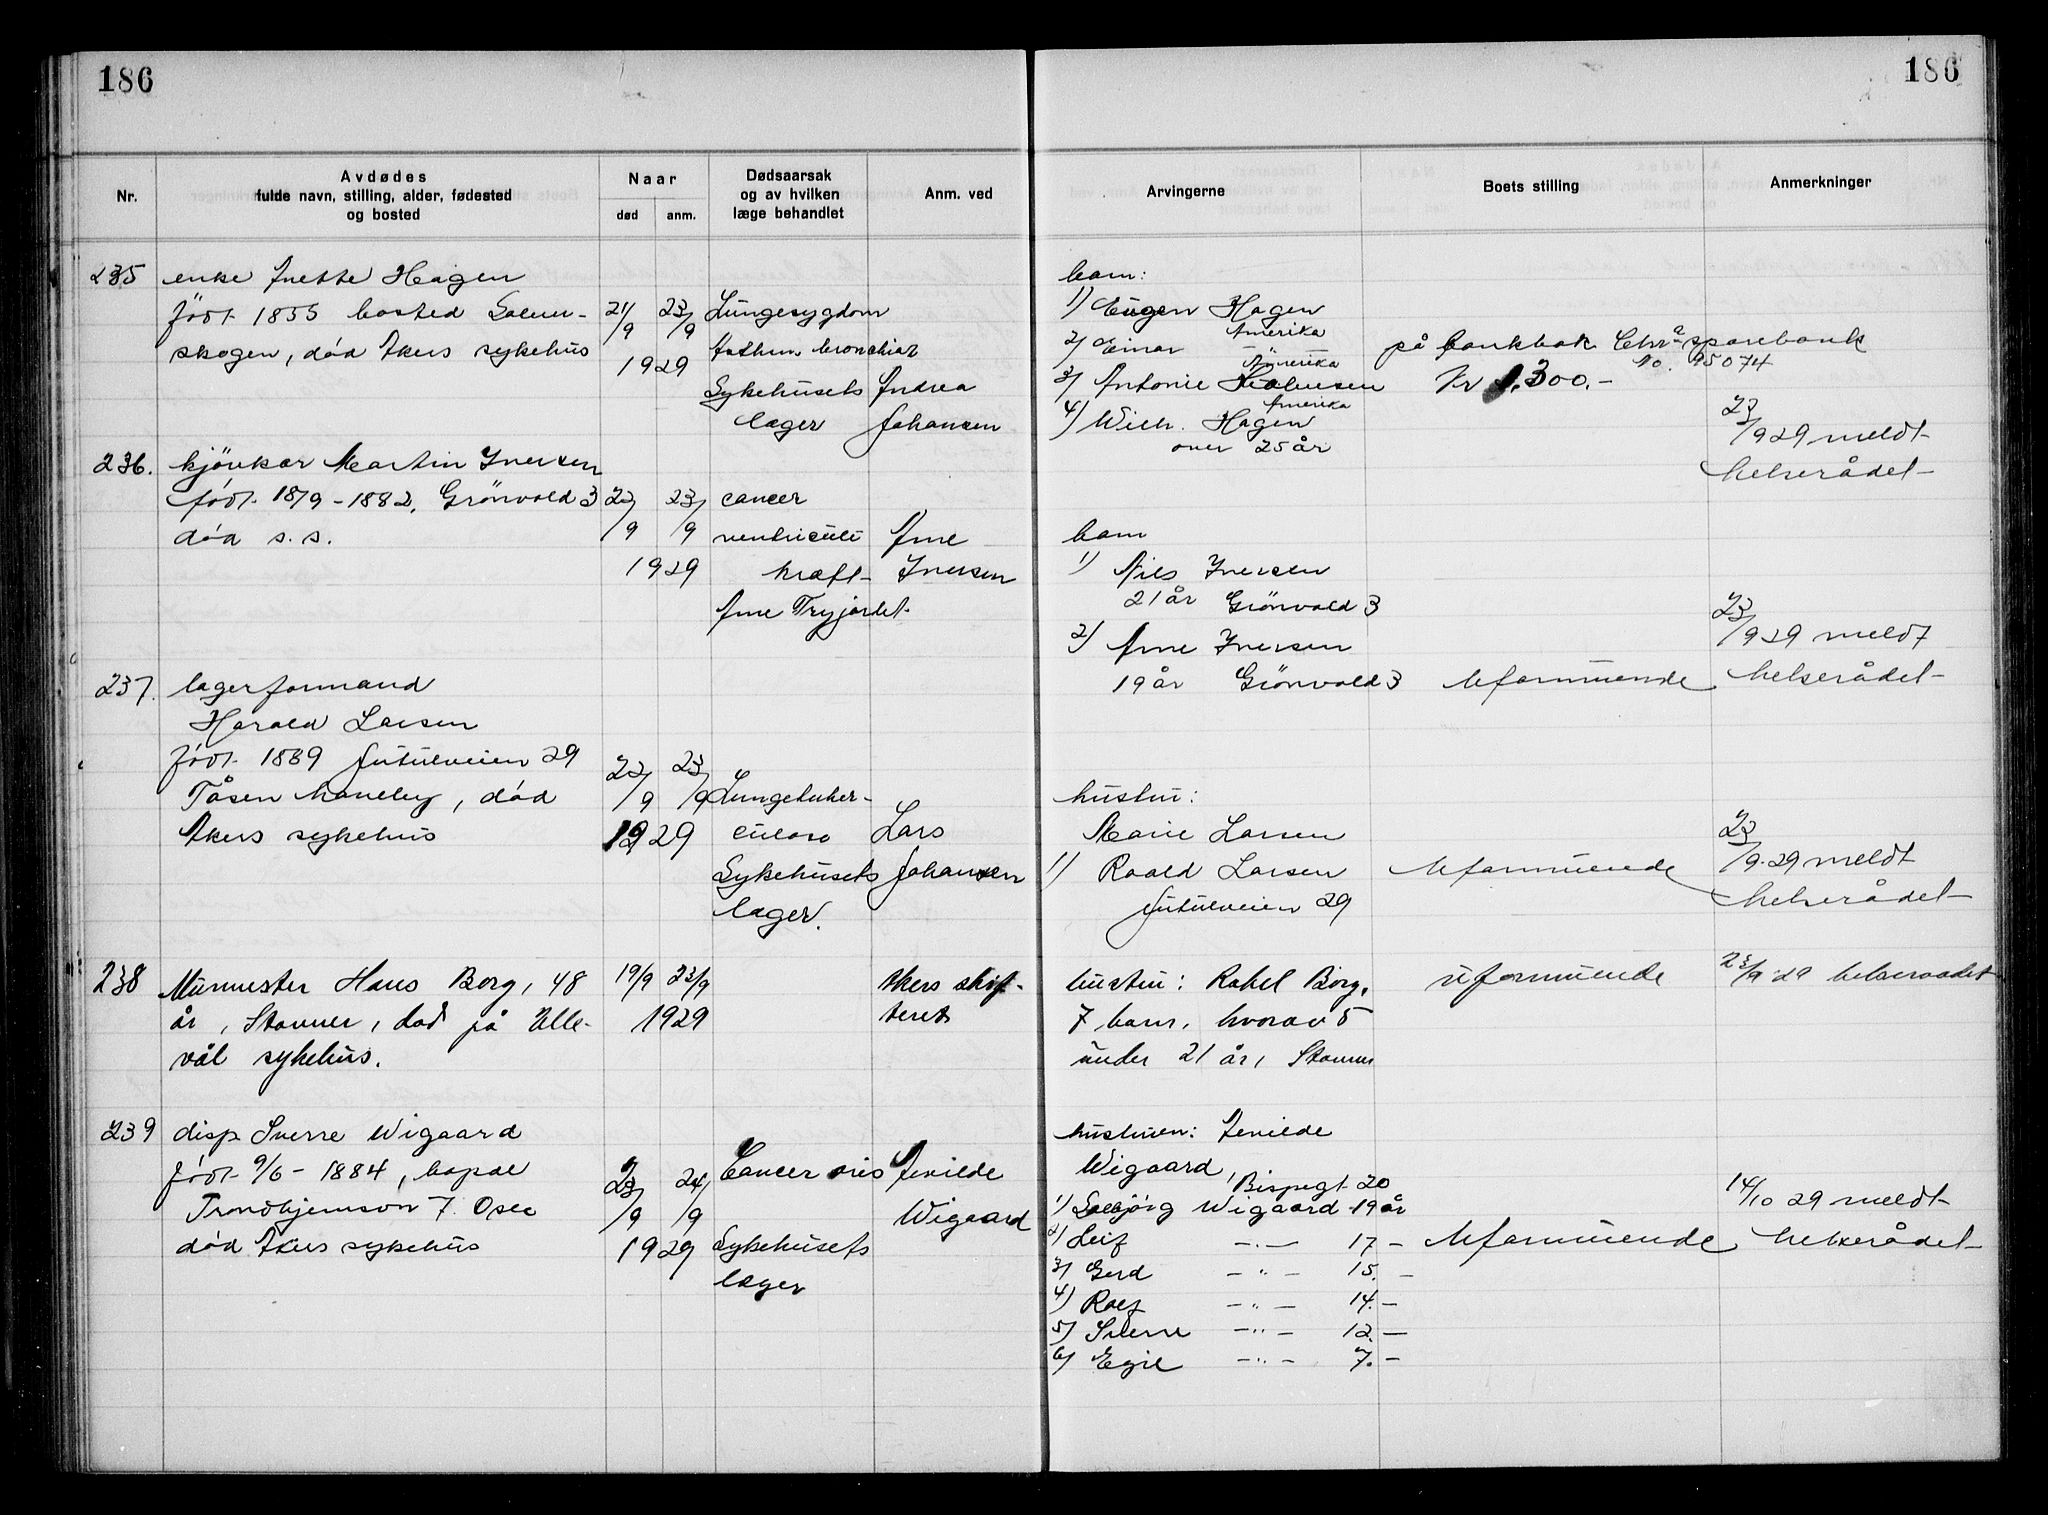 186
186
Nr.
Avdødes
fulde navn, stilling, alder, fødested
og bosted
Naar
død
anm.
Dødsaarsak
og av hvilken
læge behandlet
Anm. ved
Arvingerne
Boets stilling
Anmerkninger
235
enke Hagen
født 1855 bosted
skogen, død Akers sykehus
21/9
23/9
1929
Lungesygdom
bronchiar
Sykehusets
læger
Andrea
Johansen
barn:
1) Eugen Hagen
Amerika
2) Einar —
Amerika
3) Antonie
Amerika
4) Wilh. Hagen
over 25 år
på bankbok Chra sparebank
No. 95074
Kr 1.300.-
23/9 29 meldt
helserådet
236.
kjørekar Martin Iversen
født 18/9-1882, Grönvold 3
død s.s.
22/9
23/9
1929
cancer
ventriculi
kræft
Arne Tryjordet
Arne
Iversen
barn
1) Nils Iversen
21 år Grönvold 3
2) Arne Iversen
19 år Grönvold 3
Uformuende
23/9 29 meldt
helserådet
237.
lagerformand
Harald Larsen
født 1869 Jutulveien 29
Tåsen haveby, død
Akers sykehus
22/9
23/9
1929
Lungetuber-
culose
Sykehusets
læger.
Lars
Johansen
hustru:
Marie Larsen
1) Roald Larsen
Jutulveien 29
Uformuende
23/9-29 meldt
helserådet
238
Murmester Hans Borg, 48
år, Stovner, død på Ulle-
vål sykehus.
19/9
23/9
1929
Akers skif-
teret
hustru: Rakel Borg,
7 barn, hvorav 5
under 21 år, Stovner
uformuende
23/9 '29 helseraadet
239
disp Sverre Wigaard
født 9/6-1884, bopæl
Trondhjemsvn 7. Oslo
død Akers sykehus
23/9
24/9
1929
Cancer oris
Sykehusets
læger
Wigaard
hustruen:
Wigaard, Bispegt 20
1) Solbjörg Wigaard 19 år
2) Leif —"— 17 —
3) Gerd —"— 15. —
4) Rolf —"— 14. —
5) Sverre —"— 12. —
6) Egil —"— 7. —
Uformuende
14/10 29 meldt
helserådet